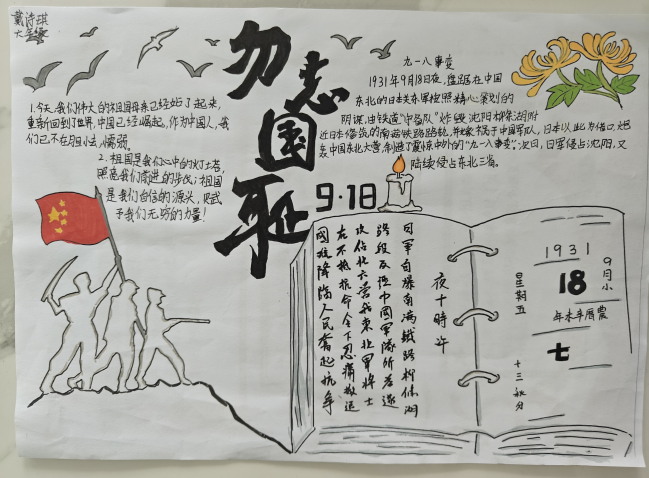 戴诗琪
六年级
勿忘国耻
9·18
1.今天,我们伟大的祖国母亲已经站了起来,
重新回到了世界,中国已经崛起,作为中国人,我
们已不在胆小、懦弱。
2.祖国是我们心中的灯塔,
照亮我们前进的步伐;祖国
是我们自信的源头,赋
予我们无穷的力量!
九一八事变
1931年9月18日夜,盘踞在中国
东北的日本关东军按照精心策划的
阴谋,由铁道“守备队”炸毁沈阳柳条湖附
近日本修筑的南满铁路路轨,并嫁祸于中国军队,日本以此为借口,
中国东北大营,制造了震惊中外的“九一八事变”。次日,日军侵占沈阳,又
陆续侵占东北三省。
夜十時许
日軍自爆南滿鐵路柳條湖
路段反诬中國軍隊所為遂
攻佔北大營我東北軍將士
在不抵抗命令下忍痛撤退
國難降臨人民奮起抗争
1931
9月小
18
星期五
農曆辛未年
七
十三秋分